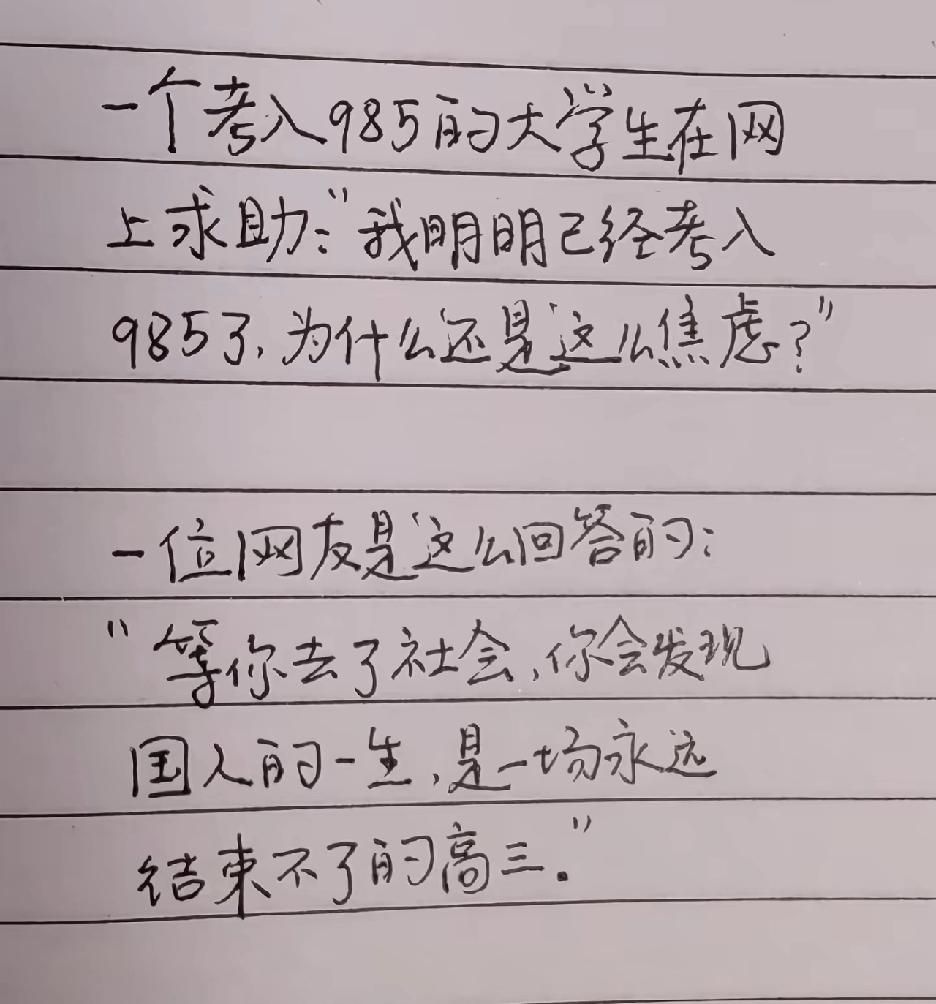 一个考入985的大学生在网
上求助:"我明明已经考入
985了,为什么还是这么焦虑?"
一位网友是这么回答的:
"等你去了社会,你会发现
国人的一生,是一场永远
结束不了的高三."